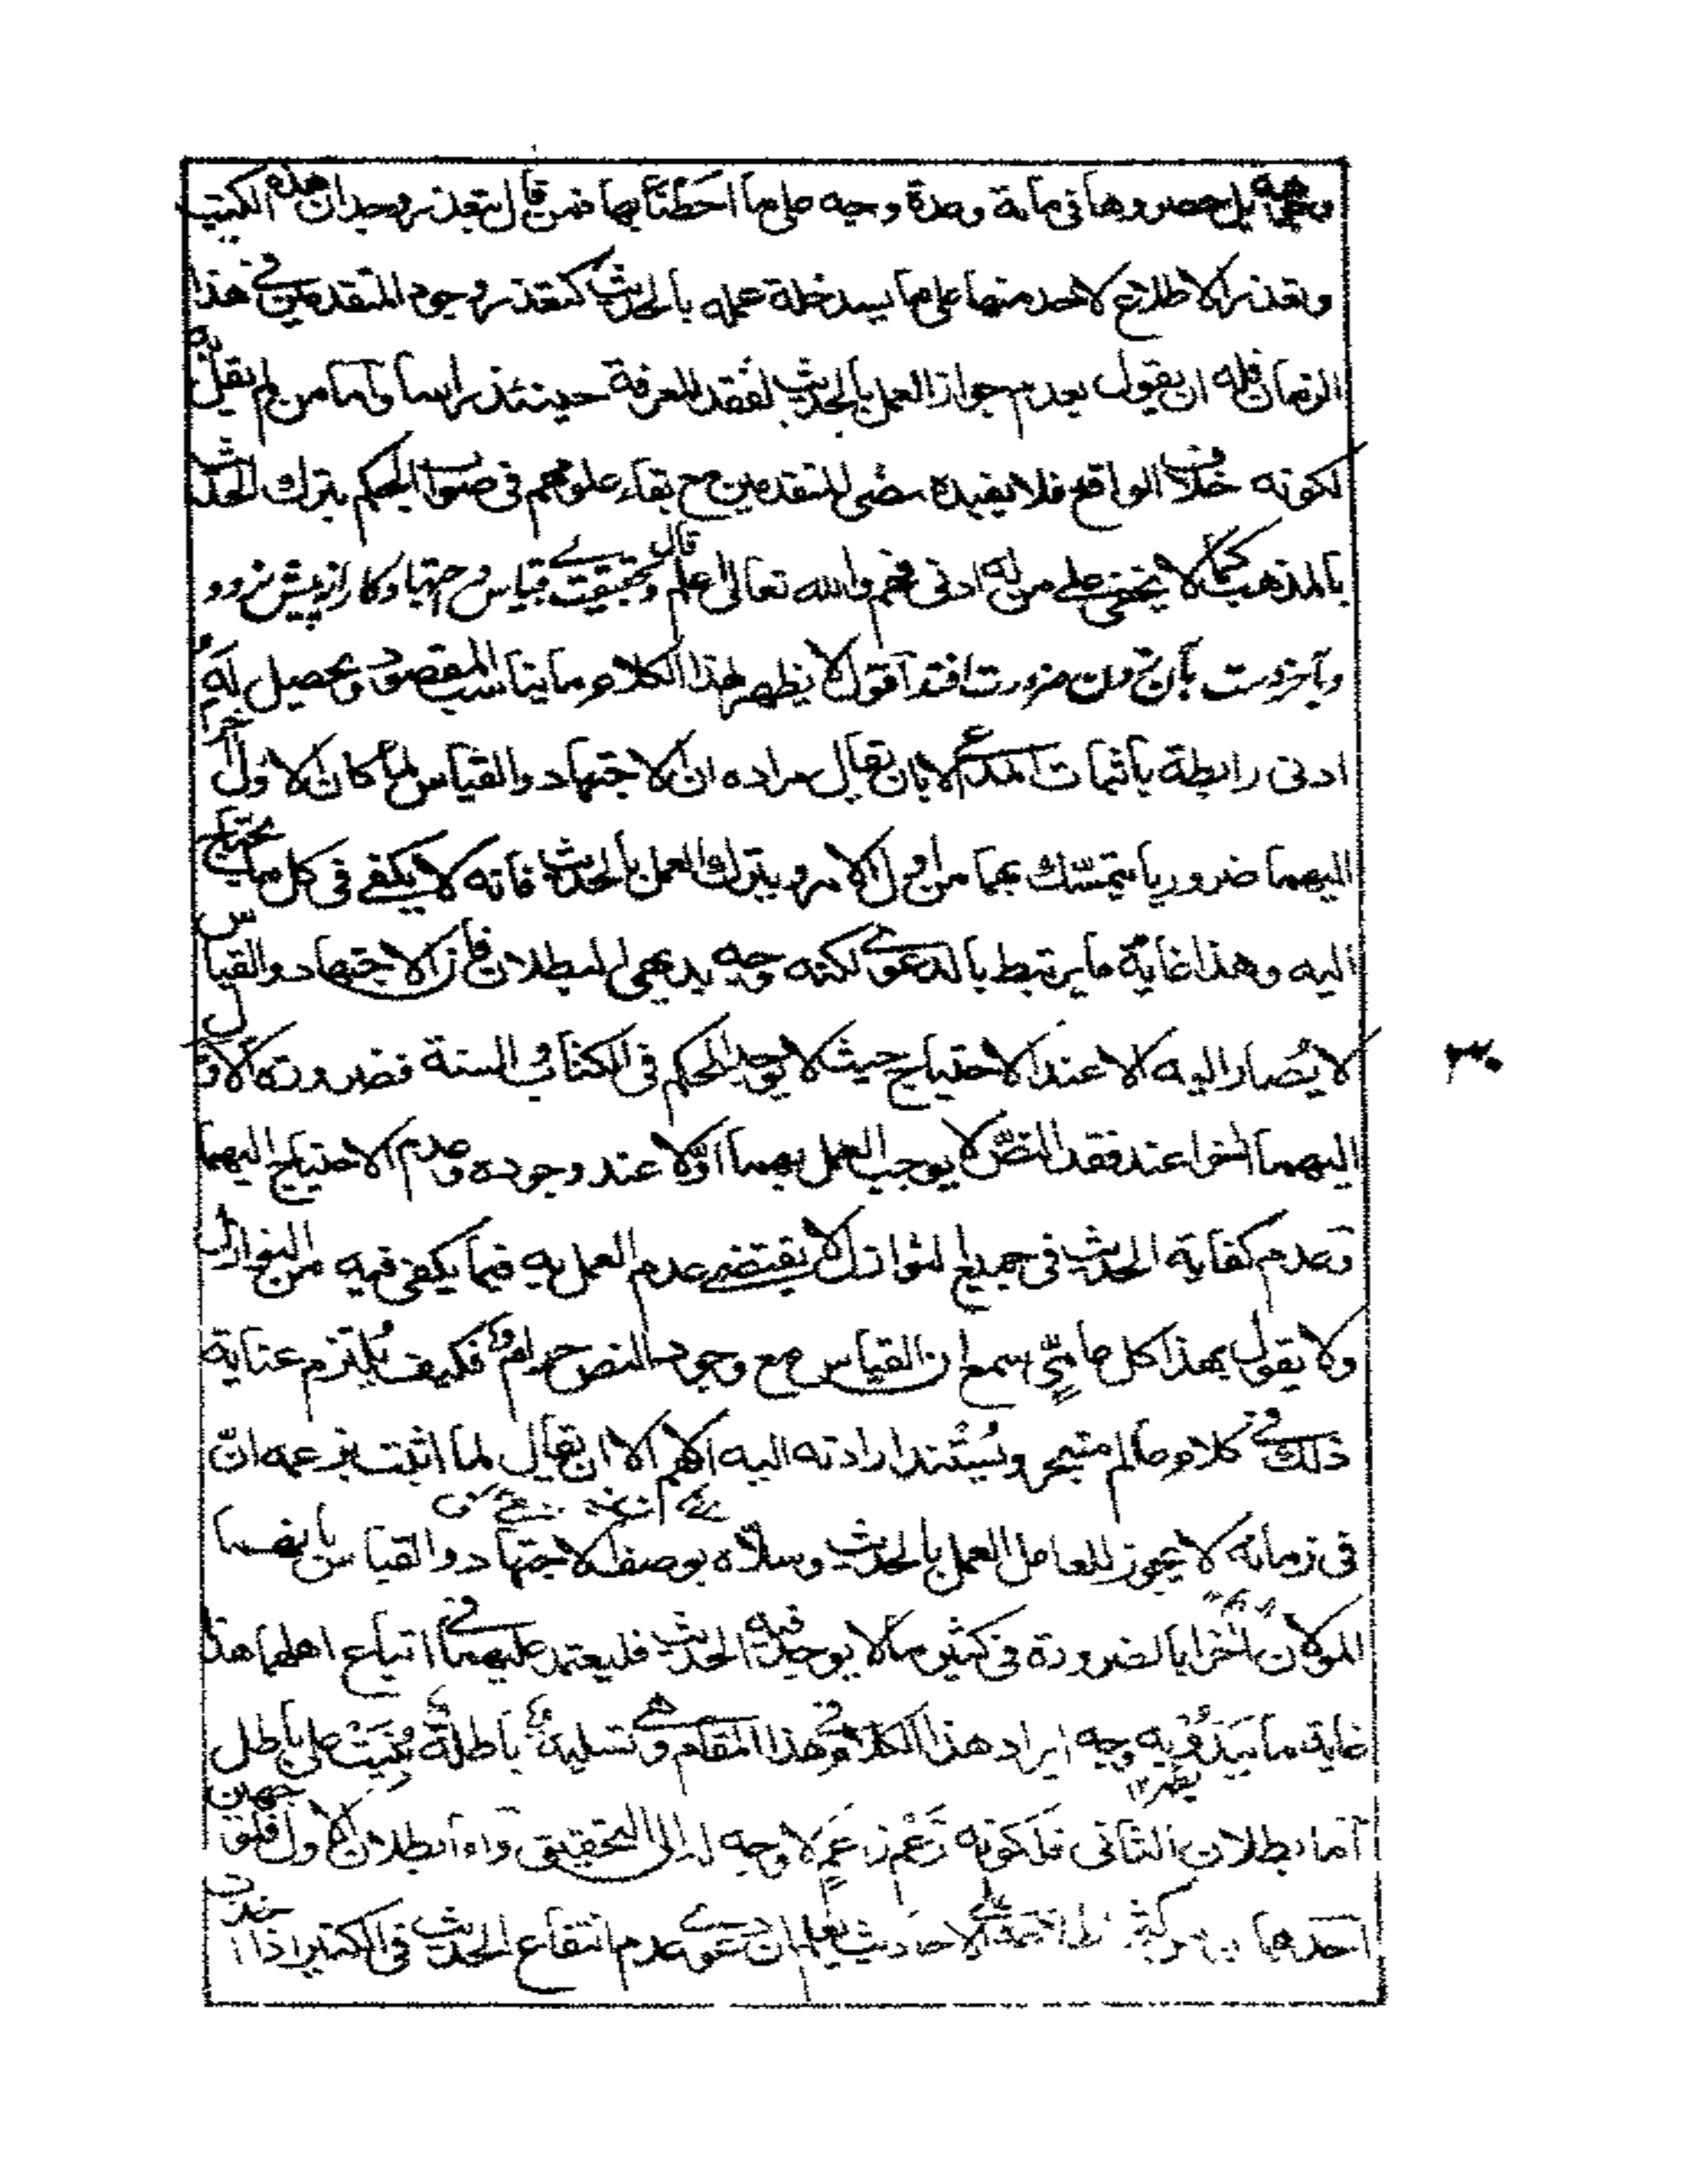 وجه بل حصروها في مائة وعدة وجيه على ما احطنا بها فمن قال بتعذر وجدان هذه الكتب
وتعذر الاطلاع لاحد منها على ما يسد خلة عمله بالحديث كتعذر وجود المتقدمين في هذا
الزمان فله ان يقول بعدم جواز العمل بالحديث لفقد المعرفة حينئذ راسا واما من لم يقل به
لكونه خلاف الواقع فلا يفيده مضى المتقدمين مع بقاء علومهم في صواب الحكم بترك الحديث
بالمذهب كما لا يخفى على من له ادنى فهم والله تعالى اعلم قال وتحقيقت قياس واجتهاد كار از پيش نرود
وبآخرت بآن ضرورت افتد اقول لا يظهر لهذا الكلام ما يناسب المقصود ويحصل له
ادنى رابطة باثبات المدعى الا بان يقال مراده ان الاجتهاد والقياس لما كان الاول آخرا
اليهما ضروريا يتمسك بهما من اول الامر ويترك العمل بالحديث فانه لا يكفي في كل ما يحتاج
اليه وهذا غاية ما يرتبط بالدعوى لكنه وجه بديهى البطلان فان الاجتهاد والقياس
لا يصار اليه الا عند الاحتياج حيث لا يوجد الحكم في الكتاب والسنة فضرورته الاول
اليهما اخرا عند فقد النص لا يوجب العمل بهما اولا عند وجوده وعدم الاحتياج اليهما
وعدم كفاية الحديث في جميع النوازل لا يقتضي عدم العمل به فيما يكفي فيه من النوازل
ولا يقول بهذا كل عامي سمع ان القياس مع وجود النص حرام فكيف يلتزم عناية
ذلك في كلام عالم متبحر ويسند ارادته اليه اللهم الا ان يقال لما اثبت بزعمه ان
في زمانه لا يجوز للعامل العمل بالحديث وسلاه بوصف الاجتهاد والقياس بانهما
المولان اخرا بالضرورة في كثير مما لا يوجد فيه الحديث فليعتمد عليهما في اتباع اهلهما هذا
غاية ما يبدو به وجه ايراد هذا الكلام في هذا المقام وهي تسلية باطلة بنيت على باطل
يظهر ١٢
اما بطلان الثاني فلكونه زعم زاعم لا وجه له الى التحقيق واما بطلان الاول فلوجهين
احدهما الاحاديث يعلم ان دعوى عدم انتفاع الحديث في اكثر اذا
٣٠